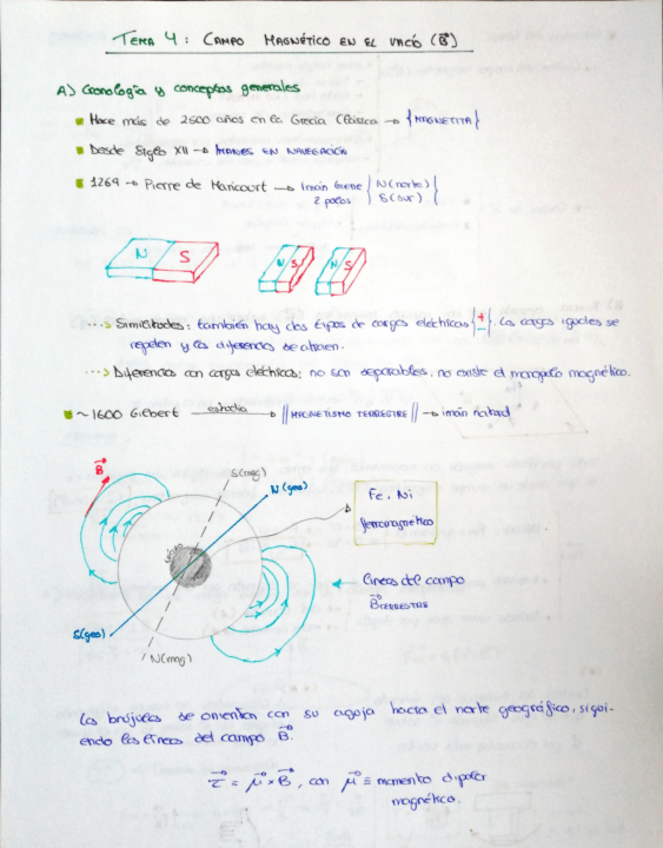 TEMA 4: CAMPO MAGNÉTICO EN EL VACÍO (B⃗)
A) Cronología y conceptos generales
Hace más de 2500 años en la Grecia Clásica → {MAGNETITA}
Desde Siglo XII → IMANES EN NAVEGACIÓN
1269 → Pierre de Maricourt → Imán tiene { N(norte) }
2 polos S(sur)
N S N S N S
···> Similitudes: también hay dos tipos de cargas eléctricas {+ −}. Las cargas iguales se
repelen y las diferencias se atraen.
···> Diferencias con cargas eléctricas: no son separables, no existe el monopolo magnético.
~1600 Gilbert estudia → ||MAGNETISMO TERRESTRE|| → imán natural
B⃗
S(mag)
N(geo)
Fe, Ni
ferromagnético
núcleo
Líneas del campo
B⃗TERRESTRE
S(geo)
N(mag)
Las brújulas se orientan con su aguja hacia el norte geográfico, sigui-
endo las líneas del campo B⃗.
τ⃗ = μ⃗ × B⃗, con μ⃗ ≡ momento dipolar
magnético.